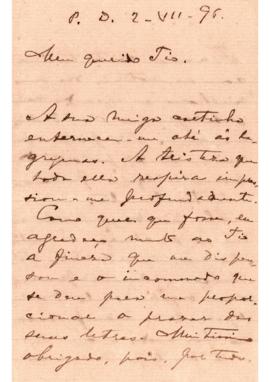 P. D. 2-VII-96.
Meu querido Tio.
A sua amiga cartinha
enterneceu-me até ás la-
grymas. A tristeza que
toda ella respira impres-
siona-me profundament.
Como quer que fosse, eu
agradeço muito ao Tio
a fineza que me dispen-
sou e o incommodo que
se deu para me propor-
cionar o prazer das
suas letras. Muitissimo
obrigado, pois, por tudo.